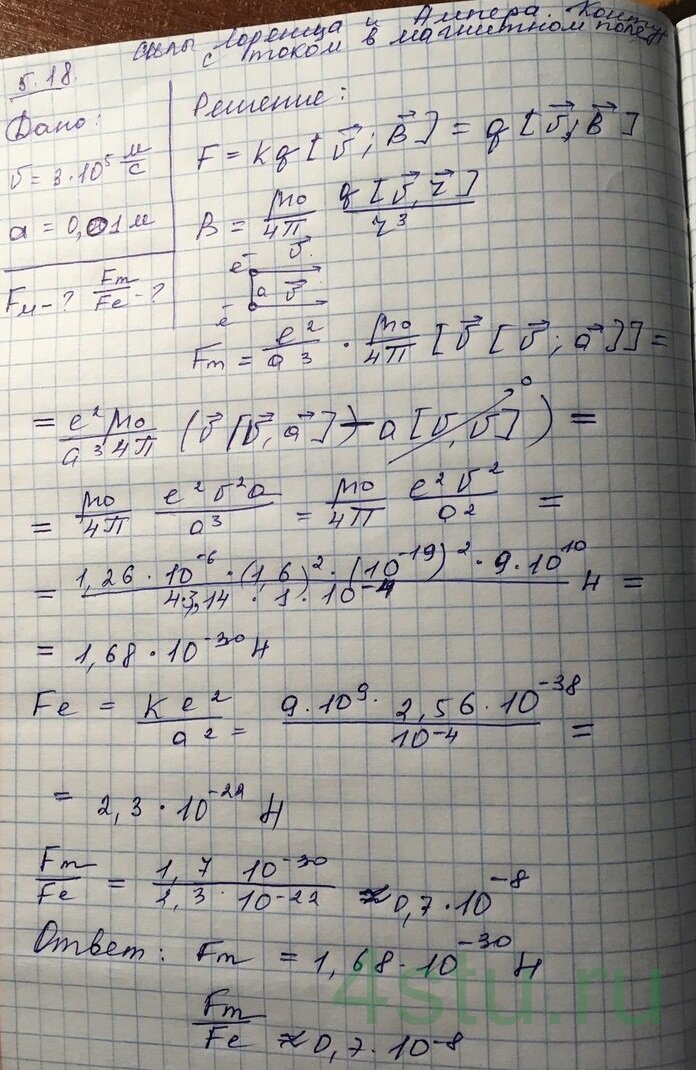 силы Лоренца и Ампера. Контур
с током в магнитном поле
5.18.
Дано:
v = 3·10⁵ м/с
a = 0,01 м
Fм - ? Fm/Fe - ?
Решение:
F = kq[v⃗; B⃗] = q[v⃗; B⃗]
B = μ₀/4π q[v⃗, r⃗]/r³
e⁻ v⃗
a v⃗
e⁻
Fm = e²/a³ · μ₀/4π [v⃗ [v⃗; a⃗]] =
= e²μ₀/a³4π (v⃗[v⃗, a⃗] - a[v⃗, v⃗]⁰) =
= μ₀/4π e²v²a/a³ = μ₀/4π e²v²/a² =
= 1,26·10⁻⁶·(1,6)²·(10⁻¹⁹)²·9·10¹⁰/4·3,14·1·10⁻⁴ Н =
= 1,68·10⁻³⁰ Н
Fe = ke²/a² = 9·10⁹·2,56·10⁻³⁸/10⁻⁴ =
= 2,3·10⁻²² Н
Fm/Fe = 1,7 10⁻³⁰/2,3·10⁻²² ≈ 0,7·10⁻⁸
Ответ: Fm = 1,68·10⁻³⁰ Н
Fm/Fe ≈ 0,7·10⁻⁸
4stu.ru